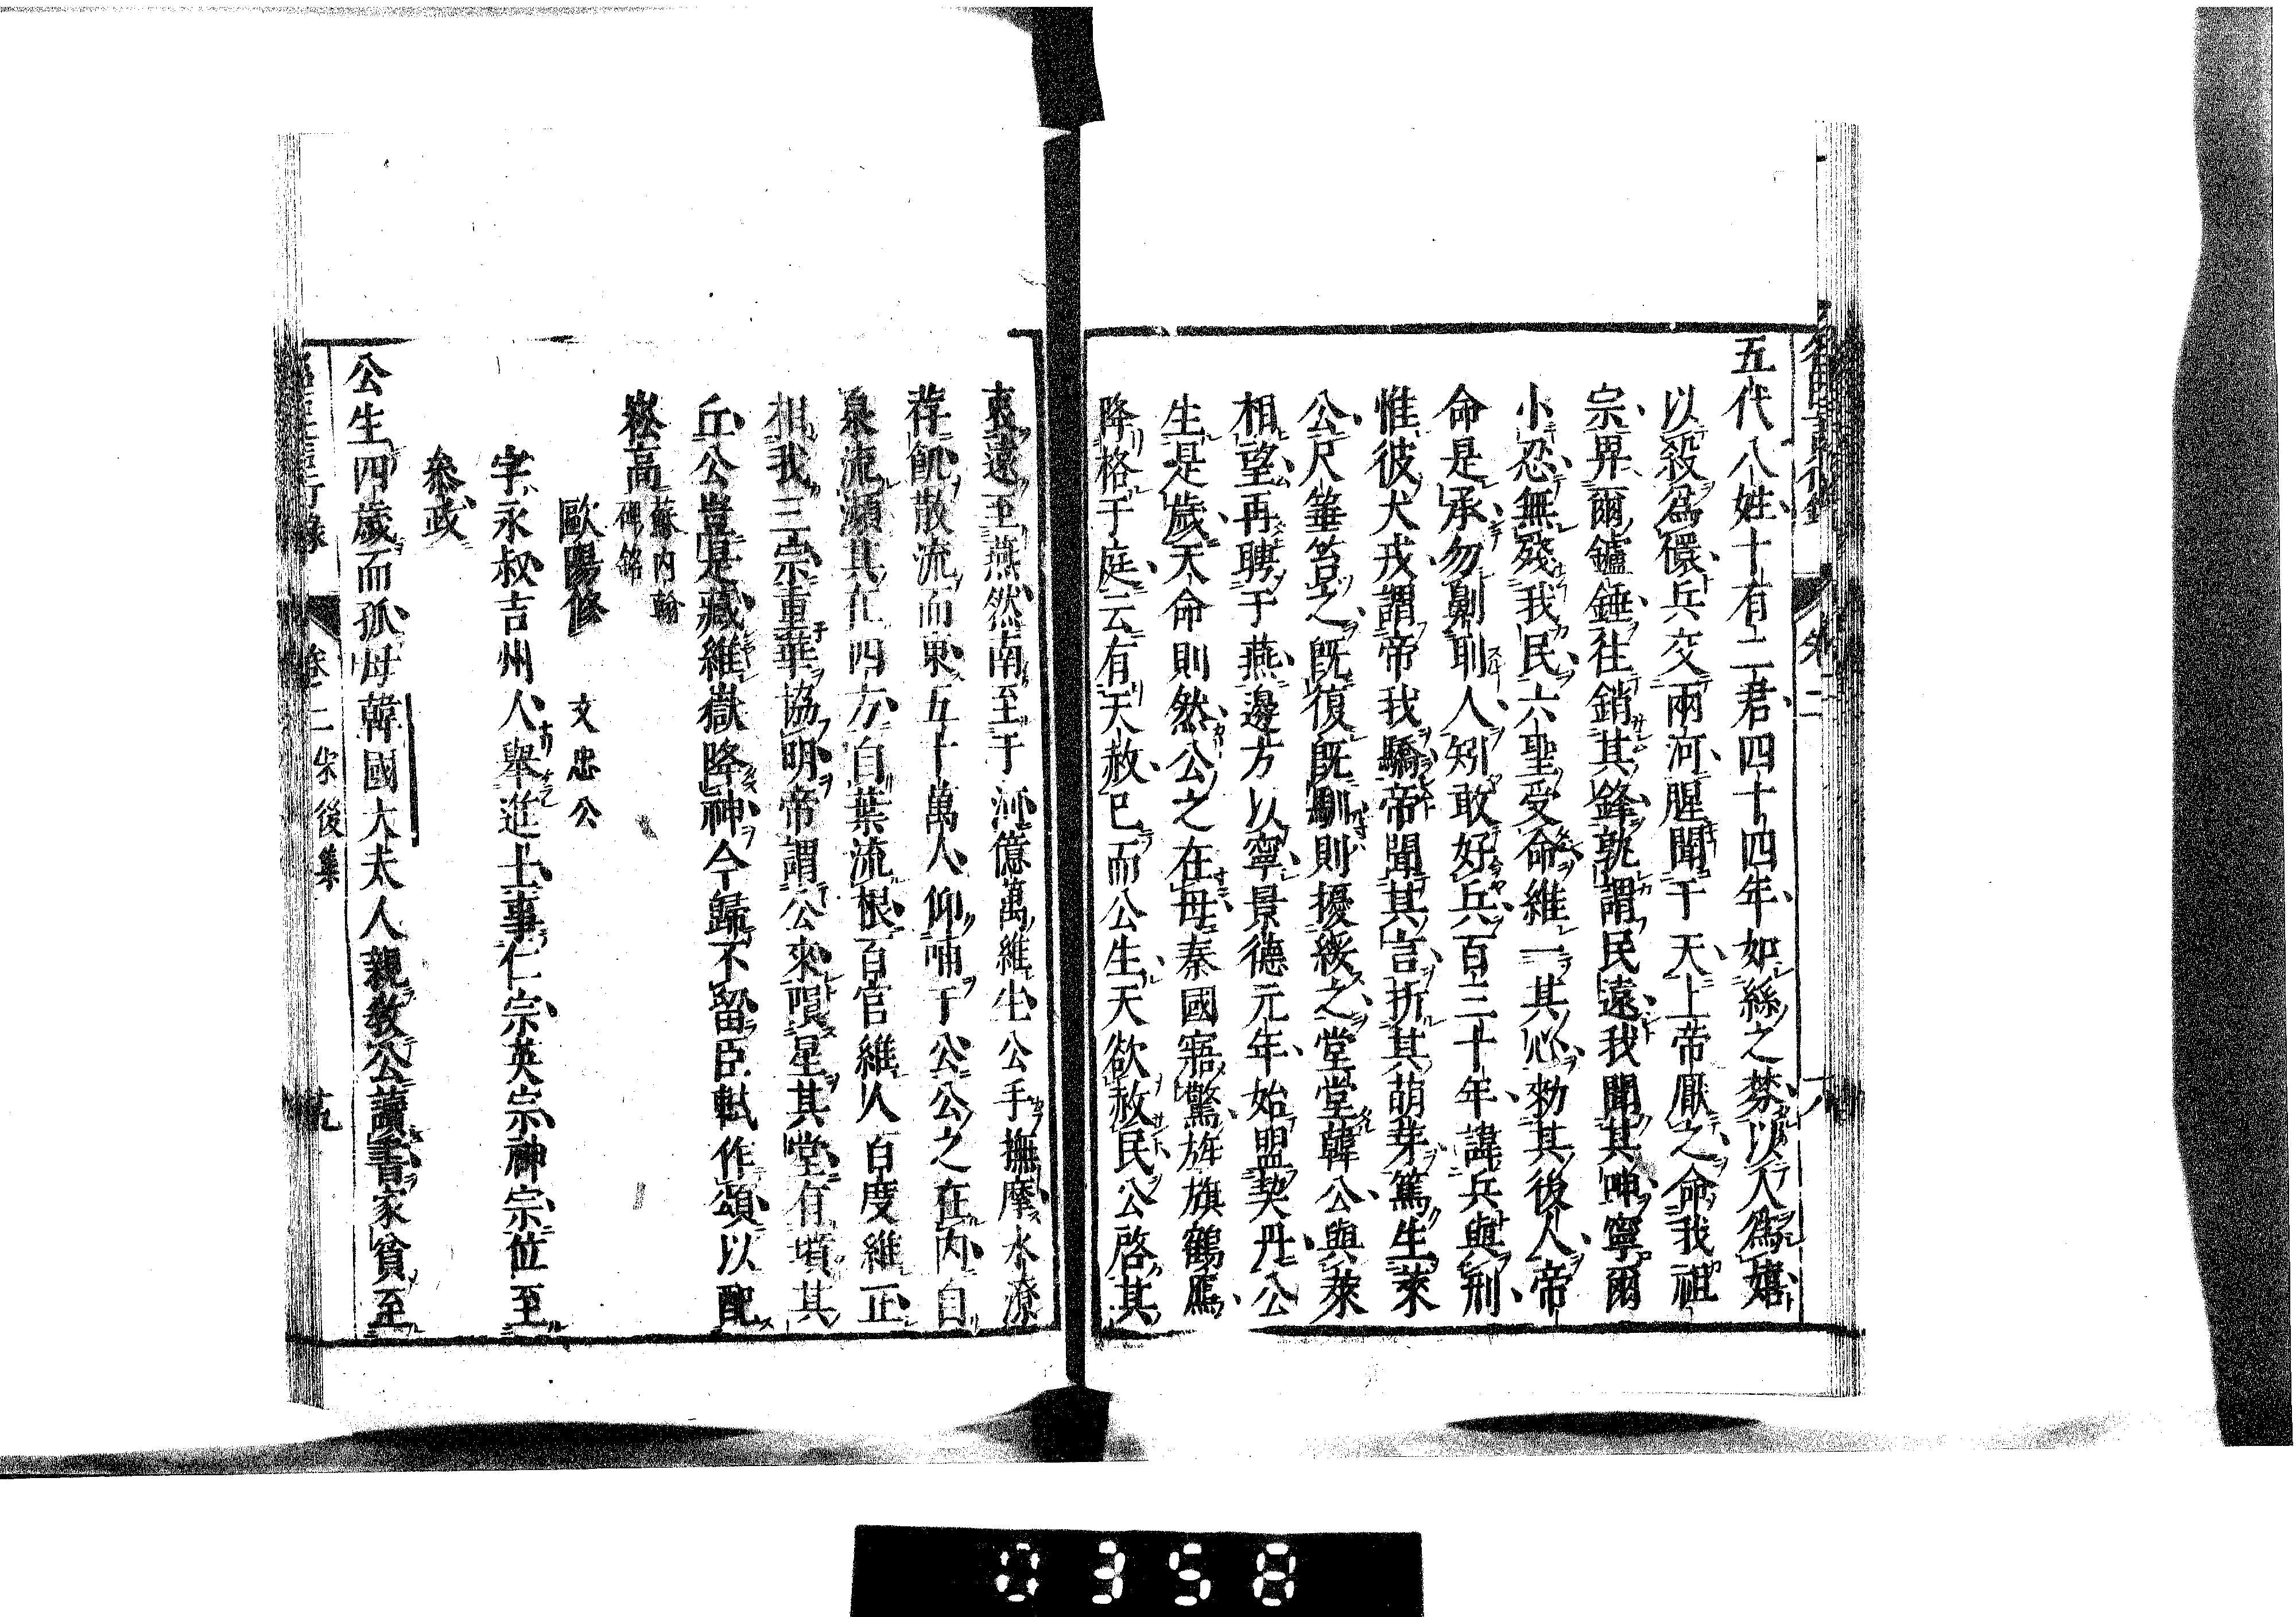 五代八姓十有二君四十四年如絲之棼以人爲嬉
以殺爲儇兵交兩河腥聞于天上帝厭之命我祖
宗畀爾鑪錘往銷其鋒孰謂民遠我聞其呻寧爾
小忍無殘我民六聖受命維一其心勑其後人帝
命是承勿劓刵人矧敢好兵百三十年諱兵與刑
惟彼犬戎謂帝我驕帝聞其言折其萌芽篤生萊
公尺箠笞之既復既馴則擾綏之堂堂韓公與萊
相望再聘于燕邊方以寧景德元年始盟契丹公
生是歲天命則然公之在母秦國寤驚旌旗鶴鴈
降格于庭云有天赦已而公生天欲赦民公啓其
衷遠至燕然南至于河億萬維生公手撫摩水潦
荐飢散流而東五十萬人仰哺于公公之在內自
泉流瀕其化四方自葉流根百官維人百度維正
相我三宗重華協明帝謂公來隕星其堂有墳其
丘公豈是藏維嶽降神今歸不留臣軾作頌以配
崧高 蘇內翰碑銘
歐陽修 文忠公
字永叔吉州人舉進士事仁宗英宗神宗位至
叅政
公生四歲而孤母韓國大太人親教公讀書家貧至
卷二 宋後集 十九
0358